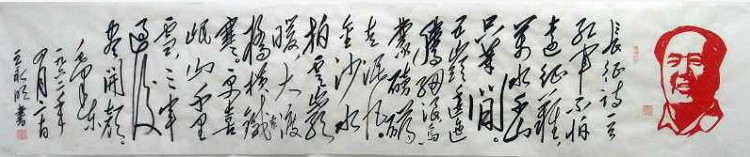 长征诗一首
红军不怕
远征难
万水千山
只等闲
五岭逶迤
腾细浪乌
蒙磅礴
走泥丸
金沙水
拍云崖
暖大渡
桥横铁索
寒更喜
岷山千里
雪三军
过后
尽开颜
毛泽东
一九六二年
四月二十日
书